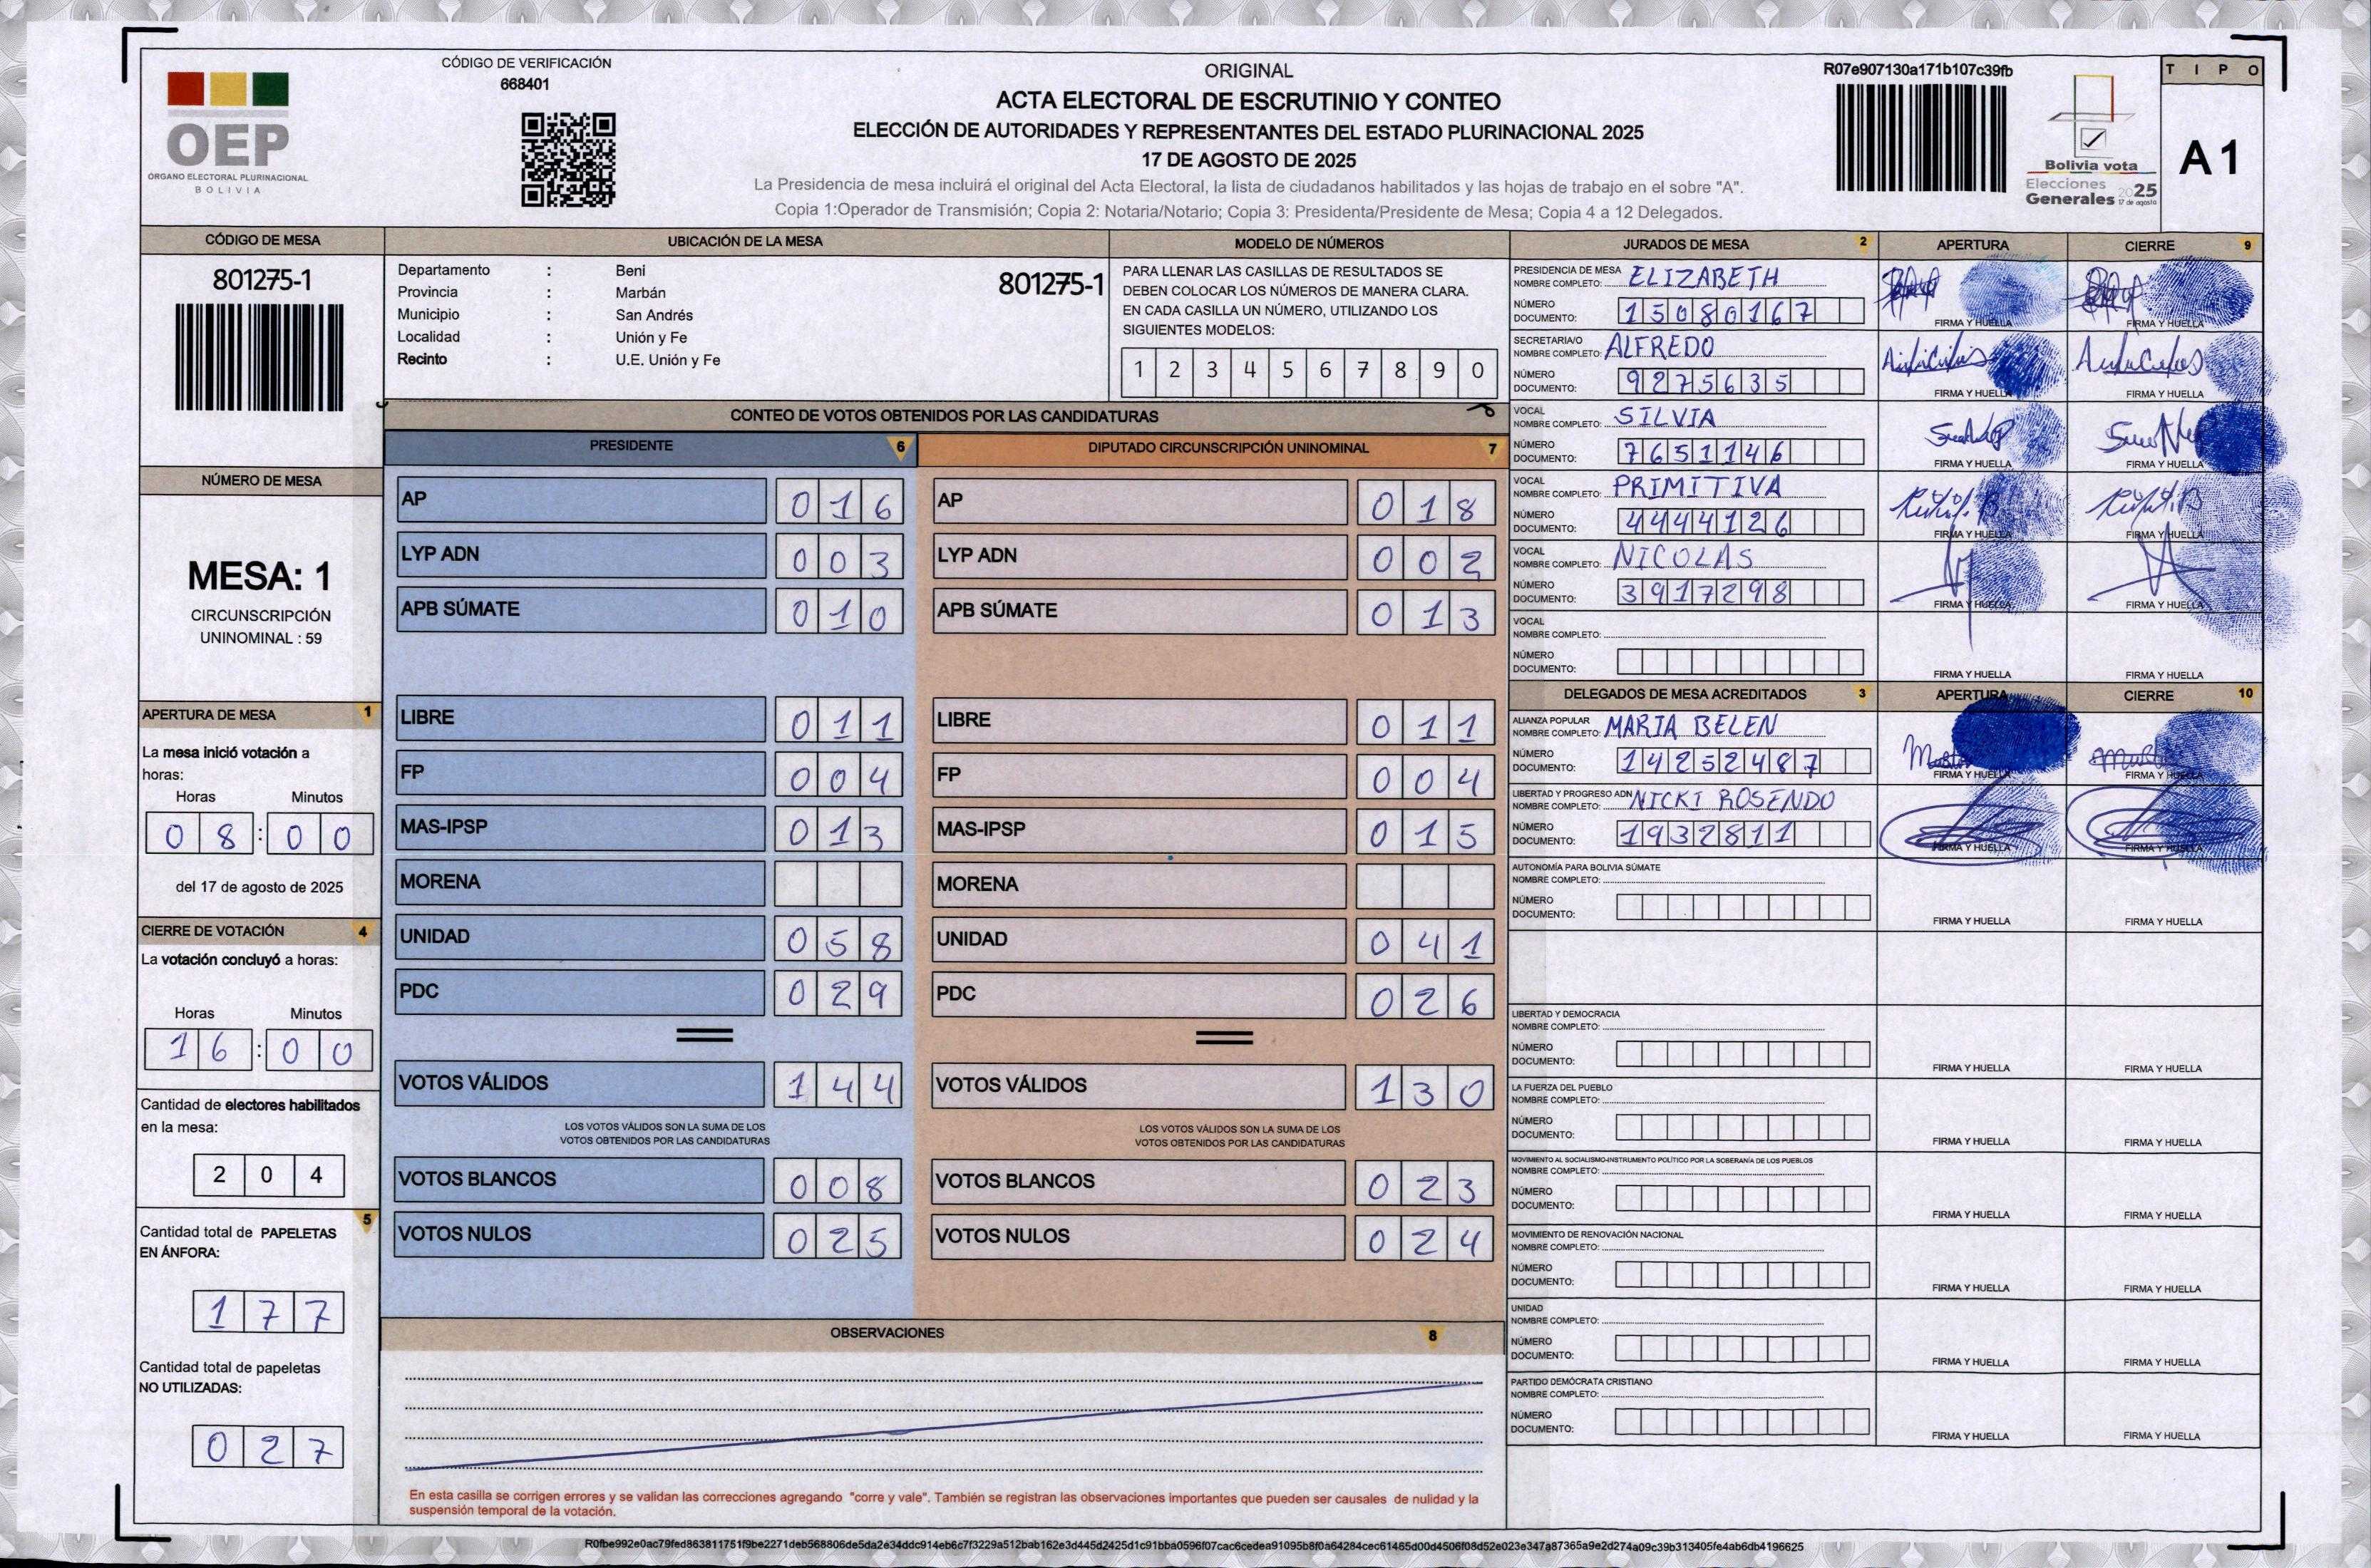 CÓDIGO DE VERIFICACIÓN
668401
OEP
ÓRGANO ELECTORAL PLURINACIONAL
BOLIVIA
ORIGINAL
ACTA ELECTORAL DE ESCRUTINIO Y CONTEO
ELECCIÓN DE AUTORIDADES Y REPRESENTANTES DEL ESTADO PLURINACIONAL 2025
17 DE AGOSTO DE 2025
La Presidencia de mesa incluirá el original del Acta Electoral, la lista de ciudadanos habilitados y las hojas de trabajo en el sobre "A".
Copia 1:Operador de Transmisión; Copia 2: Notaria/Notario; Copia 3: Presidenta/Presidente de Mesa; Copia 4 a 12 Delegados.
R07e907130a171b107c39fb
Bolivia vota
Elecciones
Generales 2025
17 de agosto
TIPO
A1
CÓDIGO DE MESA
801275-1
UBICACIÓN DE LA MESA
Departamento : Beni
Provincia : Marbán
Municipio : San Andrés
Localidad : Unión y Fe
Recinto : U.E. Unión y Fe
801275-1
MODELO DE NÚMEROS
PARA LLENAR LAS CASILLAS DE RESULTADOS SE
DEBEN COLOCAR LOS NÚMEROS DE MANERA CLARA.
EN CADA CASILLA UN NÚMERO, UTILIZANDO LOS
SIGUIENTES MODELOS:
1 2 3 4 5 6 7 8 9 0
NÚMERO DE MESA
MESA: 1
CIRCUNSCRIPCIÓN
UNINOMINAL : 59
APERTURA DE MESA 1
La mesa inició votación a
horas:
Horas Minutos
08:00
del 17 de agosto de 2025
CIERRE DE VOTACIÓN 4
La votación concluyó a horas:
Horas Minutos
16:00
Cantidad de electores habilitados
en la mesa:
204
5
Cantidad total de PAPELETAS
EN ÁNFORA:
177
Cantidad total de papeletas
NO UTILIZADAS:
027
CONTEO DE VOTOS OBTENIDOS POR LAS CANDIDATURAS
PRESIDENTE 6
AP 016
LYP ADN 003
APB SÚMATE 010
LIBRE 011
FP 004
MAS-IPSP 013
MORENA
UNIDAD 058
PDC 029
VOTOS VÁLIDOS 144
LOS VOTOS VÁLIDOS SON LA SUMA DE LOS
VOTOS OBTENIDOS POR LAS CANDIDATURAS
VOTOS BLANCOS 008
VOTOS NULOS 025
DIPUTADO CIRCUNSCRIPCIÓN UNINOMINAL 7
AP 018
LYP ADN 002
APB SÚMATE 013
LIBRE 011
FP 004
MAS-IPSP 015
MORENA
UNIDAD 041
PDC 026
VOTOS VÁLIDOS 130
LOS VOTOS VÁLIDOS SON LA SUMA DE LOS
VOTOS OBTENIDOS POR LAS CANDIDATURAS
VOTOS BLANCOS 023
VOTOS NULOS 024
OBSERVACIONES 8
En esta casilla se corrigen errores y se validan las correcciones agregando "corre y vale". También se registran las observaciones importantes que pueden ser causales de nulidad y la
suspensión temporal de la votación.
JURADOS DE MESA 2 APERTURA CIERRE 9
PRESIDENCIA DE MESA
NOMBRE COMPLETO: ELIZABETH
NÚMERO
DOCUMENTO: 15080167
FIRMA Y HUELLA FIRMA Y HUELLA
SECRETARIA/O
NOMBRE COMPLETO: ALFREDO
NÚMERO
DOCUMENTO: 9275635
FIRMA Y HUELLA FIRMA Y HUELLA
VOCAL
NOMBRE COMPLETO: SILVIA
NÚMERO
DOCUMENTO: 7651146
FIRMA Y HUELLA FIRMA Y HUELLA
VOCAL
NOMBRE COMPLETO: PRIMITIVA
NÚMERO
DOCUMENTO: 4444126
FIRMA Y HUELLA FIRMA Y HUELLA
VOCAL
NOMBRE COMPLETO: NICOLAS
NÚMERO
DOCUMENTO: 3917298
FIRMA Y HUELLA FIRMA Y HUELLA
VOCAL
NOMBRE COMPLETO:
NÚMERO
DOCUMENTO:
FIRMA Y HUELLA FIRMA Y HUELLA
DELEGADOS DE MESA ACREDITADOS 3 APERTURA CIERRE 10
ALIANZA POPULAR
NOMBRE COMPLETO: MARIA BELEN
NÚMERO
DOCUMENTO: 14252487
FIRMA Y HUELLA FIRMA Y HUELLA
LIBERTAD Y PROGRESO ADN
NOMBRE COMPLETO: NICKI ROSENDO
NÚMERO
DOCUMENTO: 1932811
FIRMA Y HUELLA FIRMA Y HUELLA
AUTONOMÍA PARA BOLIVIA SÚMATE
NOMBRE COMPLETO:
NÚMERO
DOCUMENTO:
FIRMA Y HUELLA FIRMA Y HUELLA
LIBERTAD Y DEMOCRACIA
NOMBRE COMPLETO:
NÚMERO
DOCUMENTO:
FIRMA Y HUELLA FIRMA Y HUELLA
LA FUERZA DEL PUEBLO
NOMBRE COMPLETO:
NÚMERO
DOCUMENTO:
FIRMA Y HUELLA FIRMA Y HUELLA
MOVIMIENTO AL SOCIALISMO-INSTRUMENTO POLÍTICO POR LA SOBERANÍA DE LOS PUEBLOS
NOMBRE COMPLETO:
NÚMERO
DOCUMENTO:
FIRMA Y HUELLA FIRMA Y HUELLA
MOVIMIENTO DE RENOVACIÓN NACIONAL
NOMBRE COMPLETO:
NÚMERO
DOCUMENTO:
FIRMA Y HUELLA FIRMA Y HUELLA
UNIDAD
NOMBRE COMPLETO:
NÚMERO
DOCUMENTO:
FIRMA Y HUELLA FIRMA Y HUELLA
PARTIDO DEMÓCRATA CRISTIANO
NOMBRE COMPLETO:
NÚMERO
DOCUMENTO:
FIRMA Y HUELLA FIRMA Y HUELLA